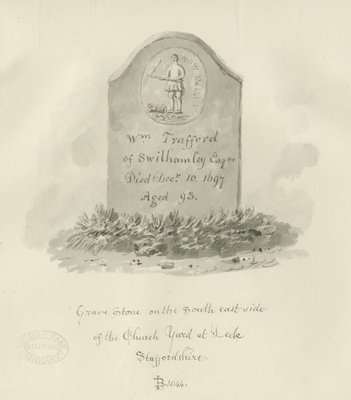 NOW THUS
Wm Trafford
of Swithamley Esqre
Died Decr 10. 1697
Aged 93.
Grave Stone on the South east side
of the Church Yard at Leek
Staffordshire.
1844.